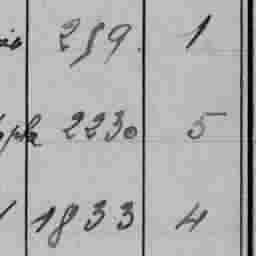 259. 1
2230 5
1833 4